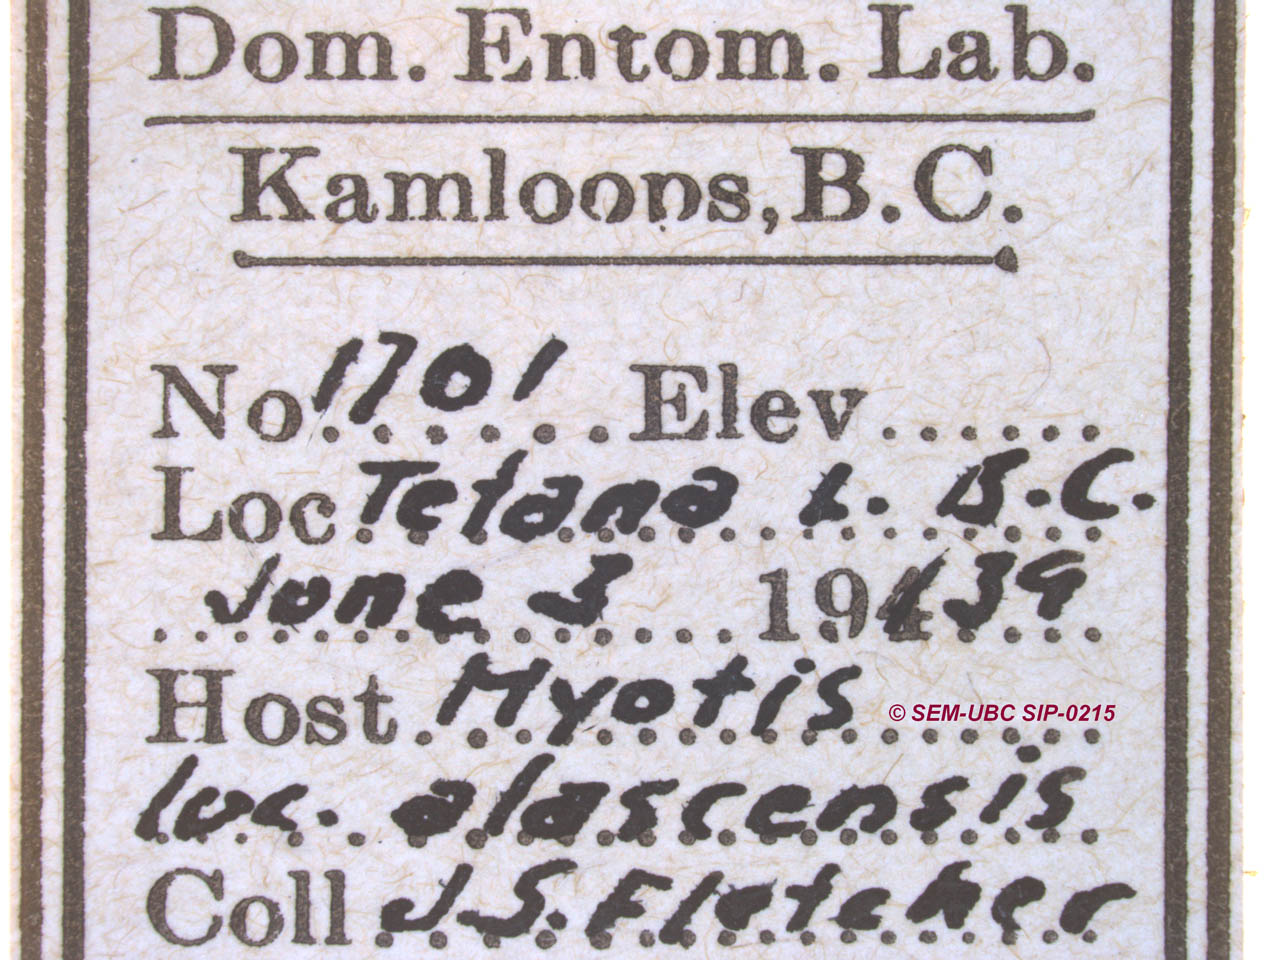 Dom. Entom. Lab.
Kamloops, B.C.
No 1701 Elev
Loc Tetana L. B.C.
June 3 1939
Host Myotis
© SEM-UBC SIP-0215
luc. alascensis
Coll J.S. Fletcher